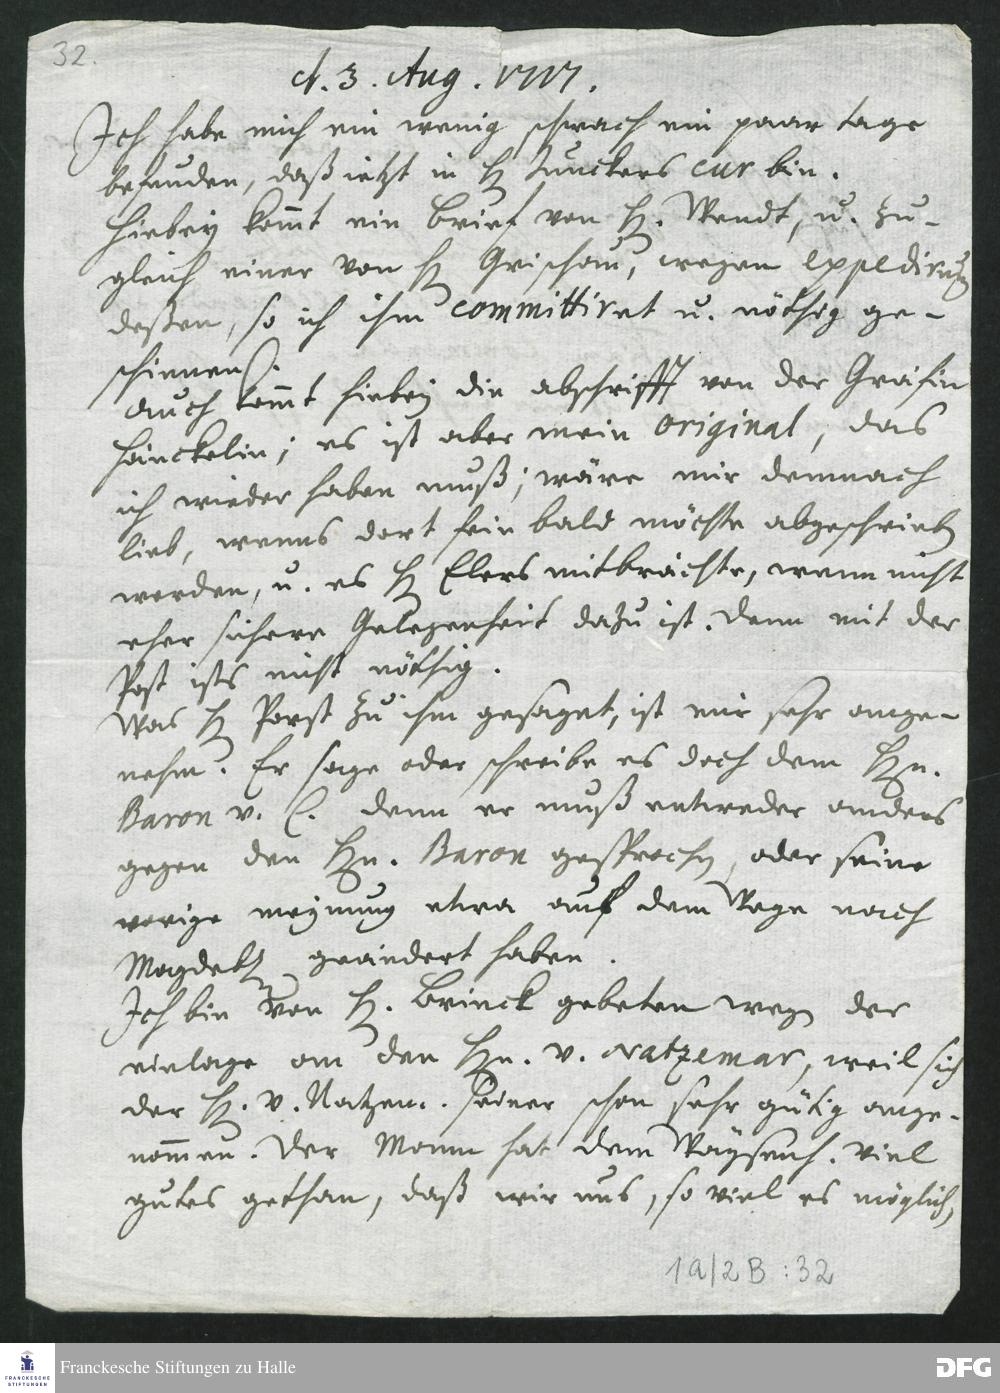 32.
d. 3. Aug. 1717.
Ich habe mich ein wenig schwach ein paar tage
befunden, daß ietzt in H Junckers cur bin.
Hiebey kom̄t ein brief von H. Wendt, u. zu-
gleich einer von H Grischau, wegen expedirung
deßen, so ich ihm committiret u. nöthig ge-
schienen.
Auch kom̄t hiebey die abschrifft von der Gräfin
Hänckelin; es ist aber mein original, das
ich wieder haben muß; wäre mir demnach
lieb, wenns dort fein bald möchte abgeschrieben
werden, u. es H Elers mitbrächte, wenn nicht
eher sichere Gelegenheit dazu ist. Denn mit der
Post ists nicht nöthig.
Was H Porst zu ihm gesaget, ist mir sehr ange-
nehm. Er sage oder schreibe es doch dem Hn.
Baron v. C. denn er muß entweder anders
gegen den Hn. Baron gesprochen, oder seine
vorige meynung etwa auf dem Wege nach
Magdeb. geändert haben.
Ich bin von H. Brinck gebeten wegen der
einlage an den Hn. v. Natzemar, weil sich
der H. v. Natzem. seiner schon sehr gütig ange-
nom̄en. Der Mann hat dem Wäysenh. viel
gutes gethan, daß wir uns, so viel es möglich,
1a/2B:32
FRANCKESCHE STIFTUNGEN
Franckesche Stiftungen zu Halle
DFG